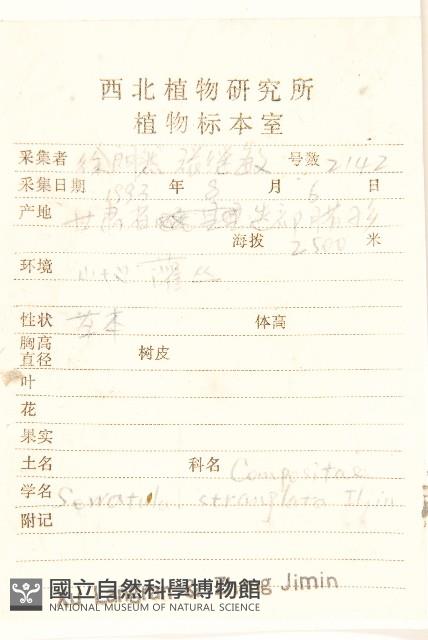 西北植物研究所
植物标本室
采集者 徐 张继敏 号数 2142
采集日期 1993 年 8 月 6 日
产地 甘肃省 迭部
海拔 2500 米
环境 灌丛
性状 草本 体高
胸高直径 树皮
叶
花
果实
土名 科名 Compositae
学名 Serratula strangulata Iljin
附记
Jimin
國立自然科學博物館
NATIONAL MUSEUM OF NATURAL SCIENCE